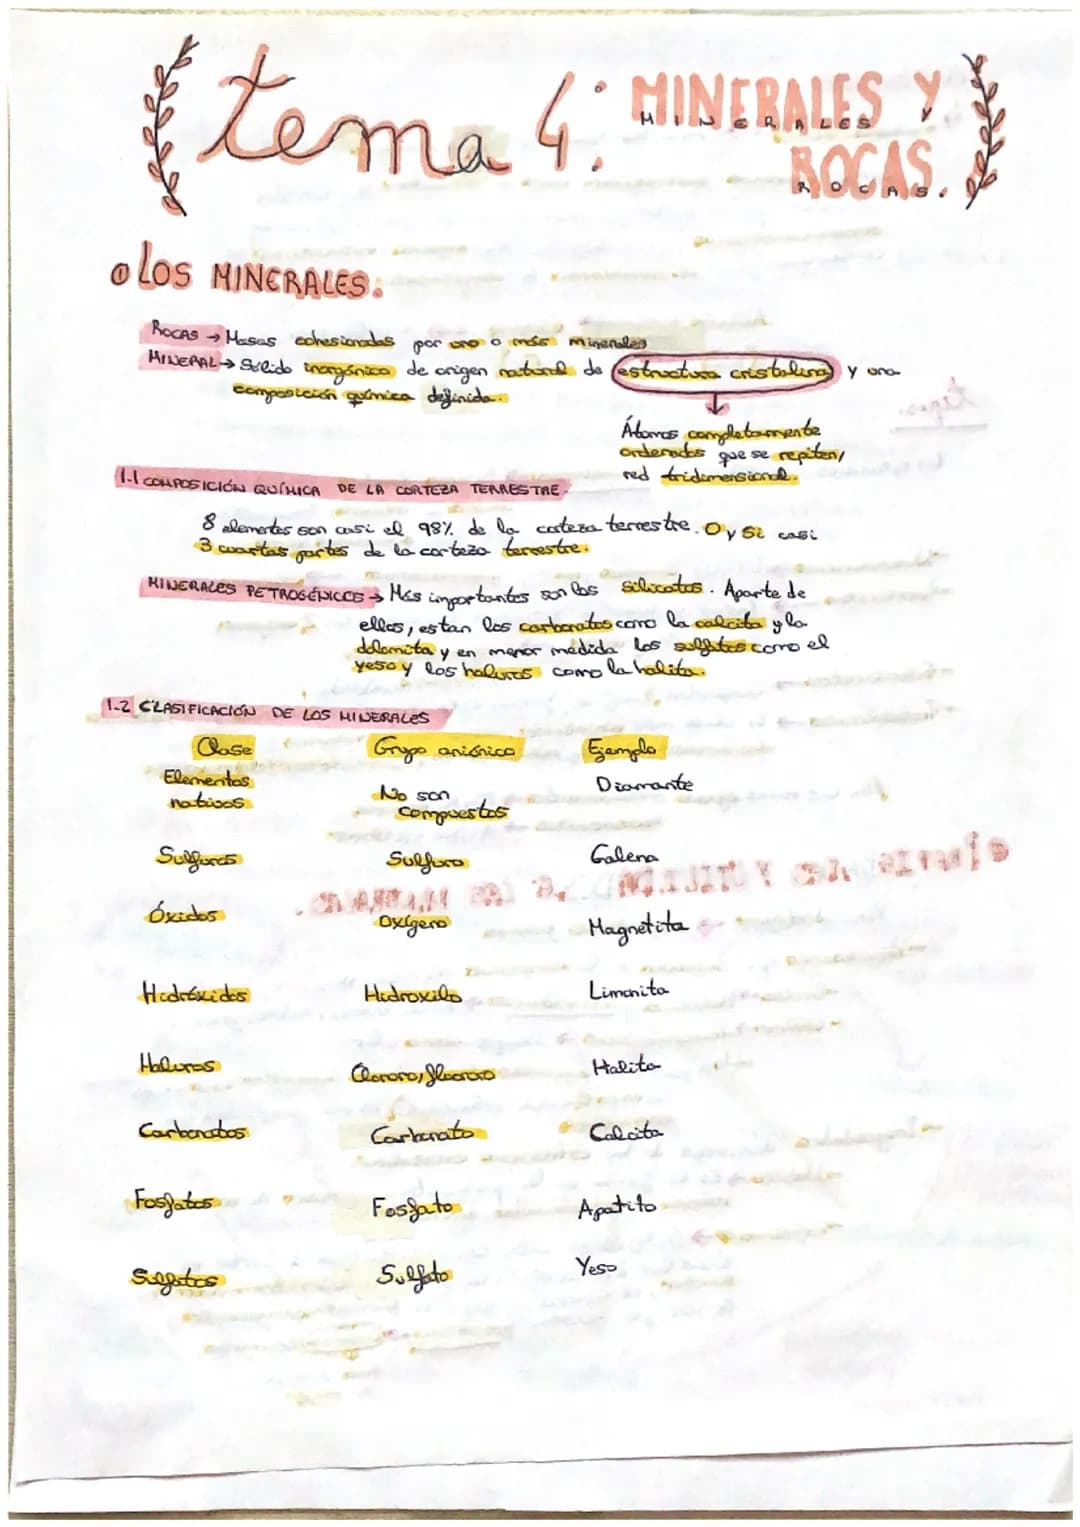 tema 4: MINERALES Y
ROCAS.
MINERALES
ROCAS.
o LOS MINERALES.
ROCAS → Masas cohesionadas por uno o más minerales
MINERAL → Sólido inorgánico de origen natural de estructura cristalina y una
composición química definida.
↓
Átomos completamente
ordenados que se repiten,
red tridimensional.
1.1 COMPOSICIÓN QUÍMICA DE LA CORTEZA TERRESTRE.
8 elementos son casi el 98% de la corteza terrestre. O y Si casi
3 cuartas partes de la corteza terrestre.
MINERALES PETROGÉNICOS → Más importantes son los silicatos. Aparte de
ellos, estan los carbonatos como la calcita y la
dolomita y en menor medida los sulfatos como el
yeso y los haluros como la halita.
1.2 CLASIFICACIÓN DE LOS MINERALES
Clase Grupo aniónico Ejemplo
Elementos
nativos No son
compuestos Diamante
Sulfuros Sulfuro Galena
Óxidos Oxígeno Magnetita
Hidróxidos Hidroxilo Limonita
Haluros Cloruro, fluoruro Halita
Carbonatos Carbonato Calcita
Fosfatos Fosfato Apatito
Sulfatos Sulfato Yeso